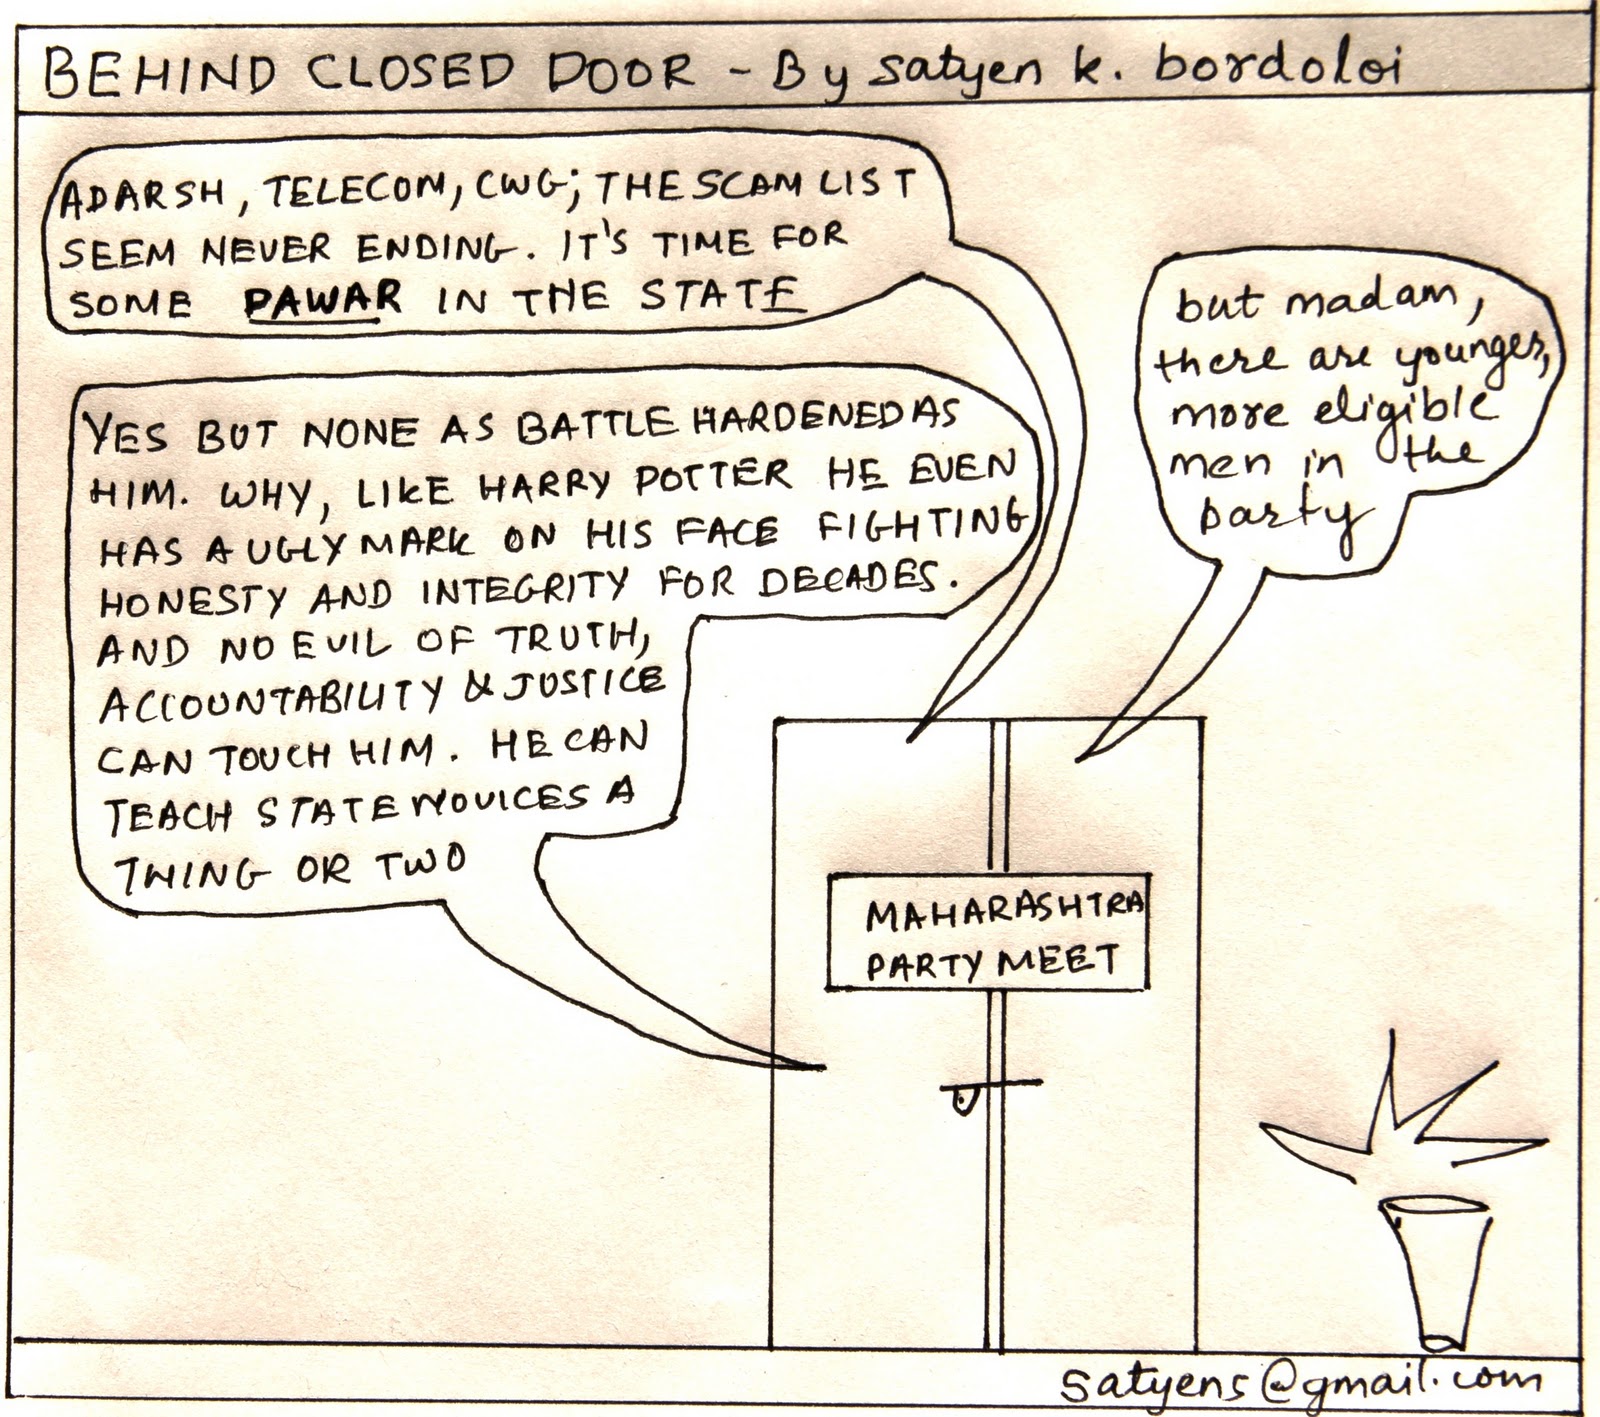 BEHIND CLOSED DOOR - By satyen k. bordoloi
ADARSH, TELECOM, CWG; THE SCAM LIST
SEEM NEVER ENDING. IT'S TIME FOR
SOME PAWAR IN THE STATE
but madam,
there are younger,
more eligible
men in the
party
YES BUT NONE AS BATTLE HARDENED AS
HIM. WHY, LIKE HARRY POTTER HE EVEN
HAS A UGLY MARK ON HIS FACE FIGHTING
HONESTY AND INTEGRITY FOR DECADES.
AND NO EVIL OF TRUTH,
ACCOUNTABILITY & JUSTICE
CAN TOUCH HIM. HE CAN
TEACH STATE NOVICES A
THING OR TWO
MAHARASHTRA
PARTY MEET
satyens@gmail.com